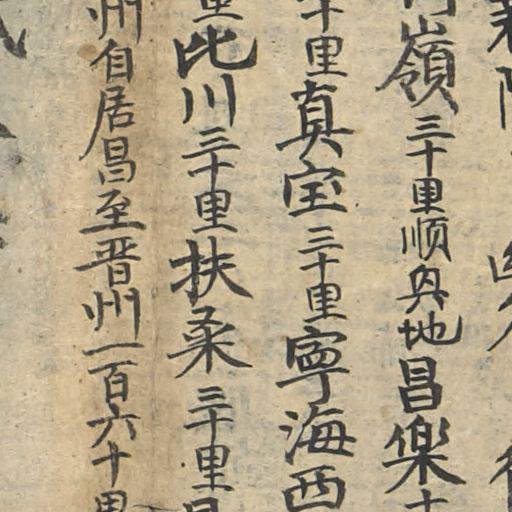 嶺三十里順奥地昌樂
十里真宝三十里寧海西
里比川三十里扶柔三十里
州自居昌至晋州一百六十里